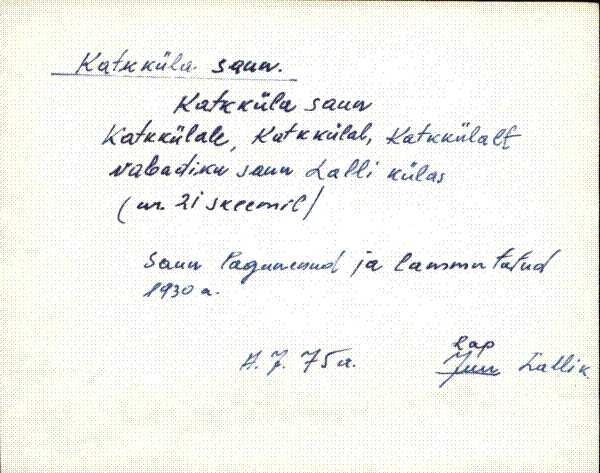 Katkküla saun.
Katkküla saun
Katkkülale, Katkkülal, Katkkülalt
vabadiku saun Lalli külas
(nr. 21 skeemil)
Saun lagunenud ja lammutatud
1930 a.
A. J. 75 a.
Lallik